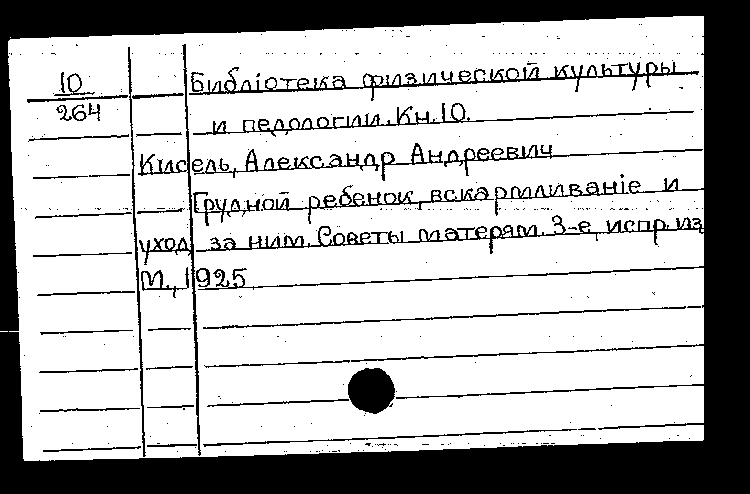 10
264
Библіотека физической культуры
и педологии. Кн. 10.
Кисель, Александр Андреевич
Грудной ребенок, вскармливаніе и
уход за ним. Советы матерям. 3-е, испр. из
М., 1925